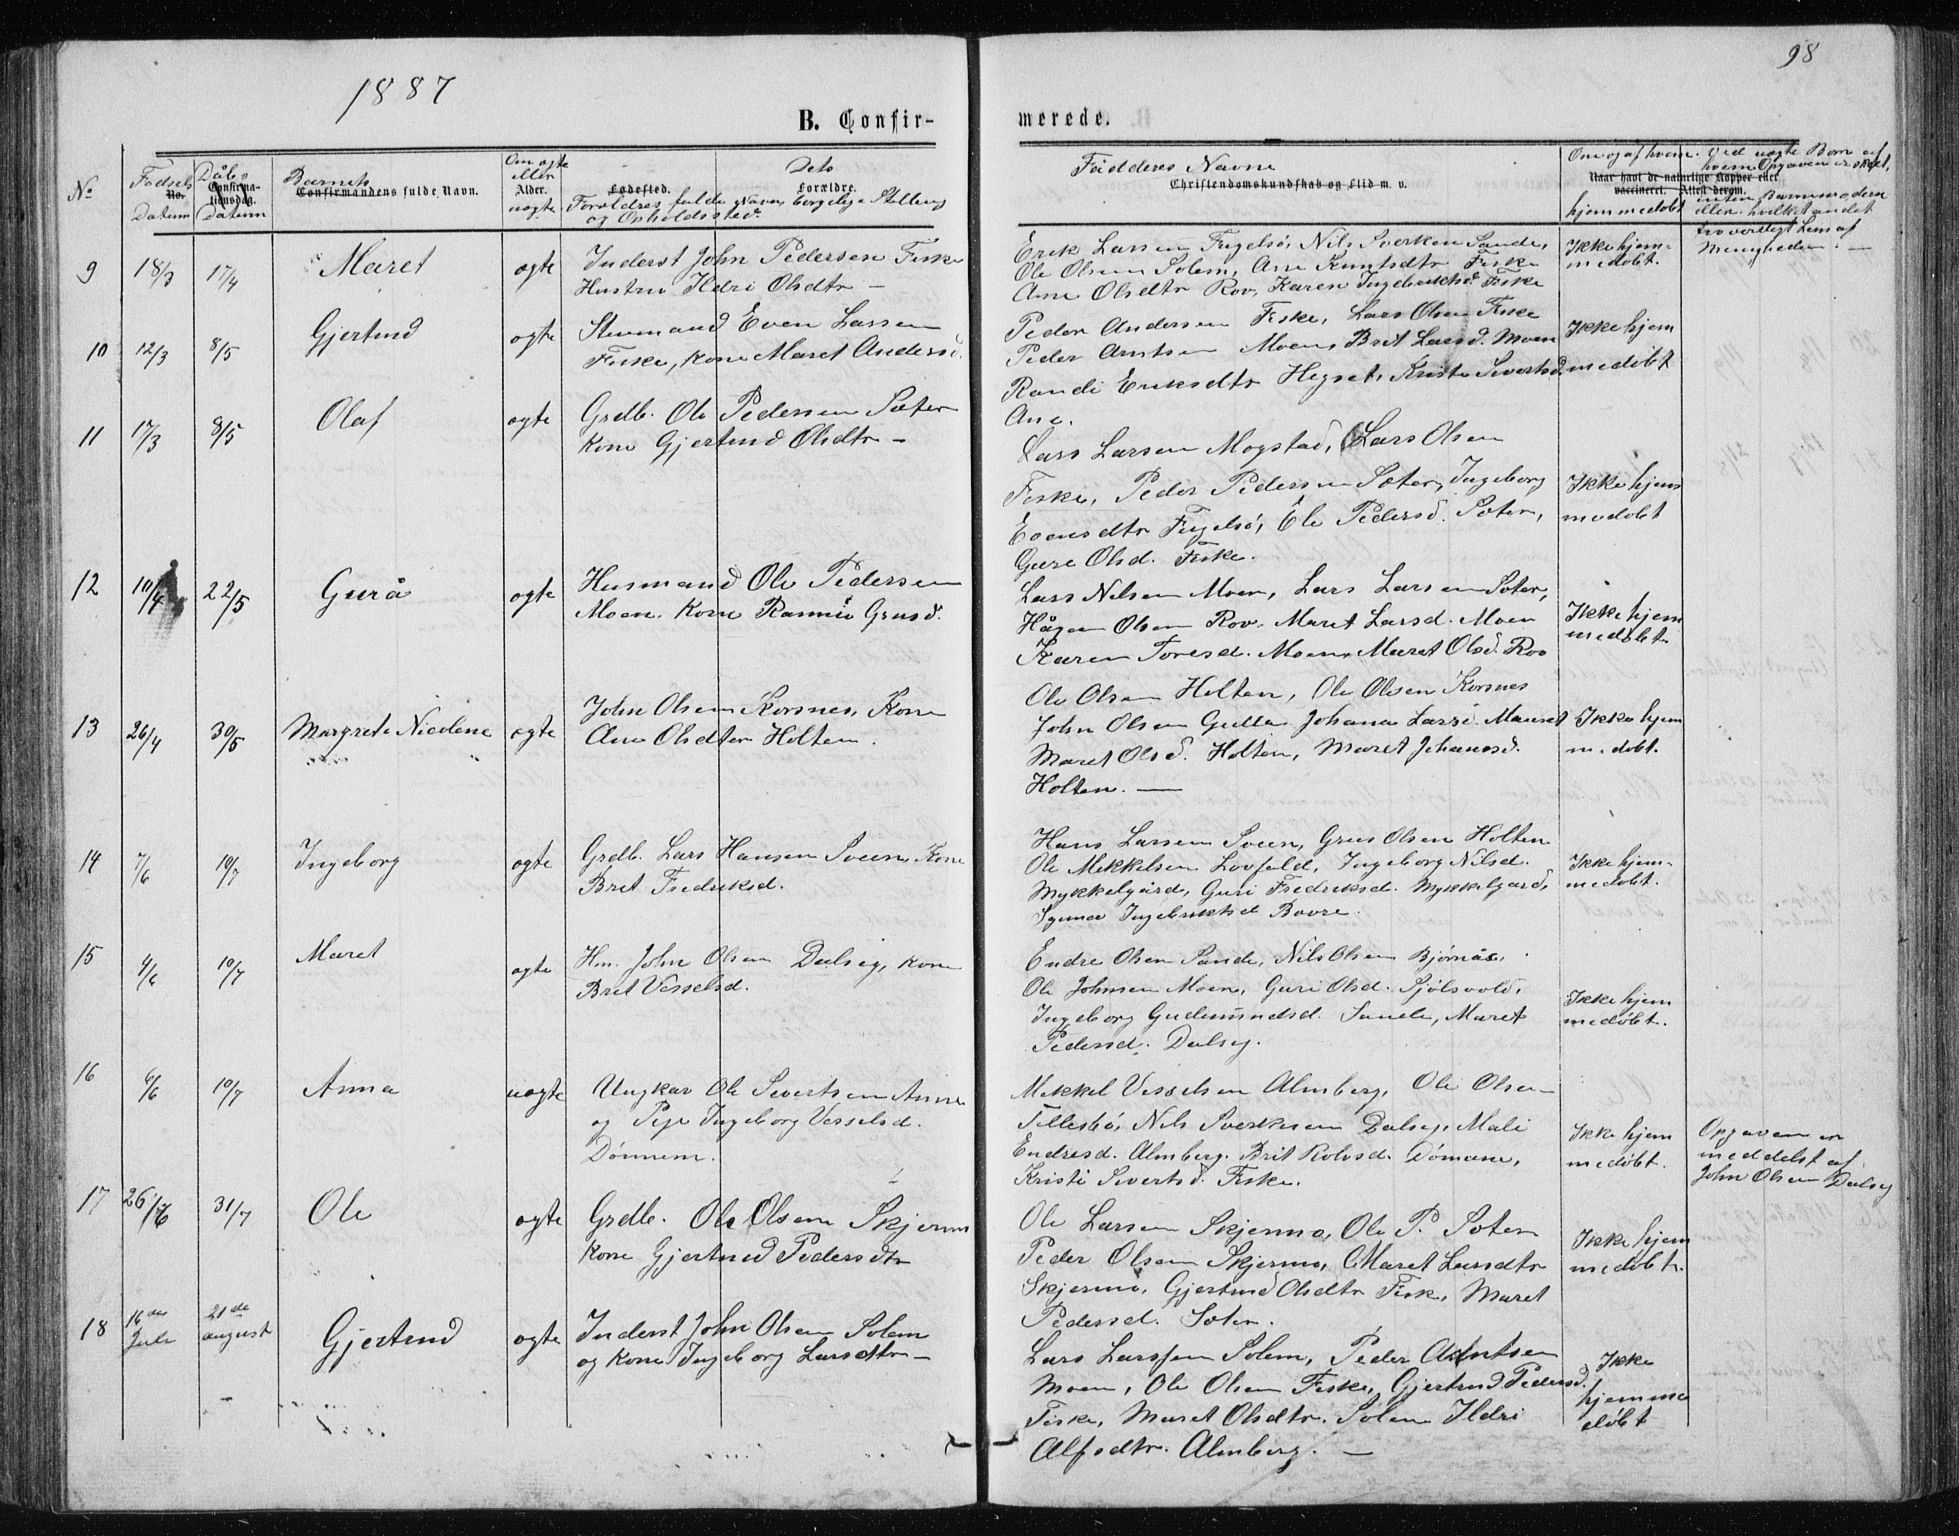 98
1887
B. Confirmerede.
No
Fødsels Datum
Dåbs Datum
Confirmationsdag.
Barnets
Confirmandens fulde Navn.
Om ægte eller uægte
Alder.
Dets
Fødested. Forældre.
Forældres fulde Navn, borgelige Stilling og Opholdssted.
Faddernes Navne
Christendomskundskab og Flid m. v.
Om og af hvem hjemmedøbt
Naar havt de naturlige Kopper eller vaccineret. Attest derom.
Ved uægte Børn af hvem Opgaven er skeet, enten Barnemoderen eller hvilket andet troværdigt Lem af Menigheden. —
9 18/3 17/4 Maret ægte Inderst John Pedersen Fiske
Hustru Ildri Olsdtr —
Erik Larsen Fugelsö, Nils Sverken Sande,
Ole Olsen Solem, Ane Knutsdtr Fiske
Ane Olsdtr Rov, Karen Ingebriktsd. Fiske
Ikke hjem-
medøbt.
10 12/3 8/5 Gjertrud ægte Stuemand Even Larsen
Fiske, kone Maret Andersd.
Peder Andersen Fiske, Lars Olsen Fiske
Peder Arntsen Moen, Brit Larsd. Moen
Randi Eriksdtr Hegset, Kristi Sivertsd.
Ane.
Ikke hjem
medøbt
11 17/3 8/5 Olaf ægte Grdb. Ole Pedersen Sæter
kone Gjertrud Olsdtr —
Lars Larsen Mogstad, Lars Olsen
Fiske, Peder Pedersen Sæter, Ingeborg
Evensdtr Fugelsö, Ele Pedersd. Sæter,
Gure Olsd. Fiske.
Ikke hjem
medøbt
12 10/4 22/5 Gurå ægte Husmand Ole Pedersen
Moen. Kone Rannei Grusd.
Lars Nilsen Moen, Lars Larsen Sæter,
Hågen Olsen Rov, Maret Larsd. Moen
Karen Toresd. Moen, Maret Olsd. Rov
Ikke hjem
medøbt
13 26/4 30/5 Margrete Nicoline ægte John Olsen Korsnes, Kone
Ane Olsdter Holten.
Ole Olsen Holten, Ole Olsen Korsnes
John Olsen Gulla Johana Larsd. Mauset
Maret Olsd. Holten, Maret Johansd.
Holten. —
Ikke hjem
medøbt.
14 7/6 10/7 Ingeborg ægte Grdb. Lars Hansen Sveen, Kone
Bret Fredriksd.
Hans Larsen Sveen, Grus Olsen Holten
Ole Mekkelsen Lovfald, Ingeborg Nilsd.
Mykkelgård, Guri Fredriksd. Mykkelgard,
Synnev Ingebriktsd Bovre.
Ikke hjem-
medøbt.
15 4/6 10/7 Maret ægte Hm. John Olsen Dalseg, kone
Bret Vesselsd.
Endre Olsen Sande, Nils Olsen Bjørnås,
Ole Johnsen Moen, Guri Olsd. Sjølsvold,
Ingeborg Gudmundsd. Sande, Maret
Pedersd. Dalseg.
Ikke hjem
medøbt.
16 6/6 10/7 Anna uægte Ungkar Ole Sivertsen Anne
og Pige Ingeborg Vesselsd.
Dønnem.
Mekkel Vesselsen Almberg, Ole Olsen
Tellesbö, Nils Sverkesen Dalseg, Mali
Endresd. Almberg. Brit Rolvsd. Dömane,
Kristi Sivertsd. Fiske.
Ikke hjem
medøbt.
Opgaven er
meddelst af
John Olsen Dalseg
17 26/6 31/7 Ole ægte Grdb. Ole Olsen Skjermo
kone Gjertrud Pedersdtr
Ole Larsen Skjermo, Ole P. Sæter
Peder Olsen Skjermo, Maret Larsdtr
Skjermo, Gjertrud Olsdtr Fiske, Maret
Pedersd. Sæter.
Ikke hjem
medøbt.
18 16de Juli 21de august Gjertrud ægte Inderst John Olsen Solem
og kone Ingeborg Larsdtr —
Lars Larssen Solem, Peder Arntsen
Moen, Ole Olsen Fiske, Gjertrud Pedersd.
Fiske, Maret Olsdtr. Solem Ildri
Alfsdtr. Almberg. —
Ikke
hjemme
døbt